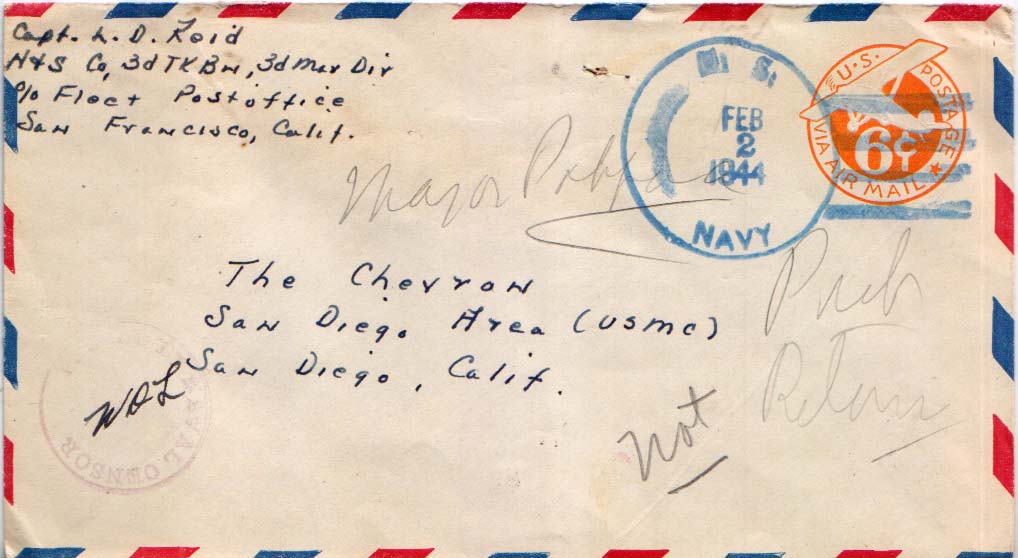 Capt. L. D. Reid
H&S Co, 3d TK Bn, 3d Mar Div
c/o Fleet Postoffice
San Francisco, Calif.
U. S.
FEB
2
1944
NAVY
U.S. POSTAGE
6¢
VIA AIR MAIL
Major
The Chevron
San Diego Area (USMC)
San Diego, Calif.
Pub
Return
Not
NAVAL CENSOR